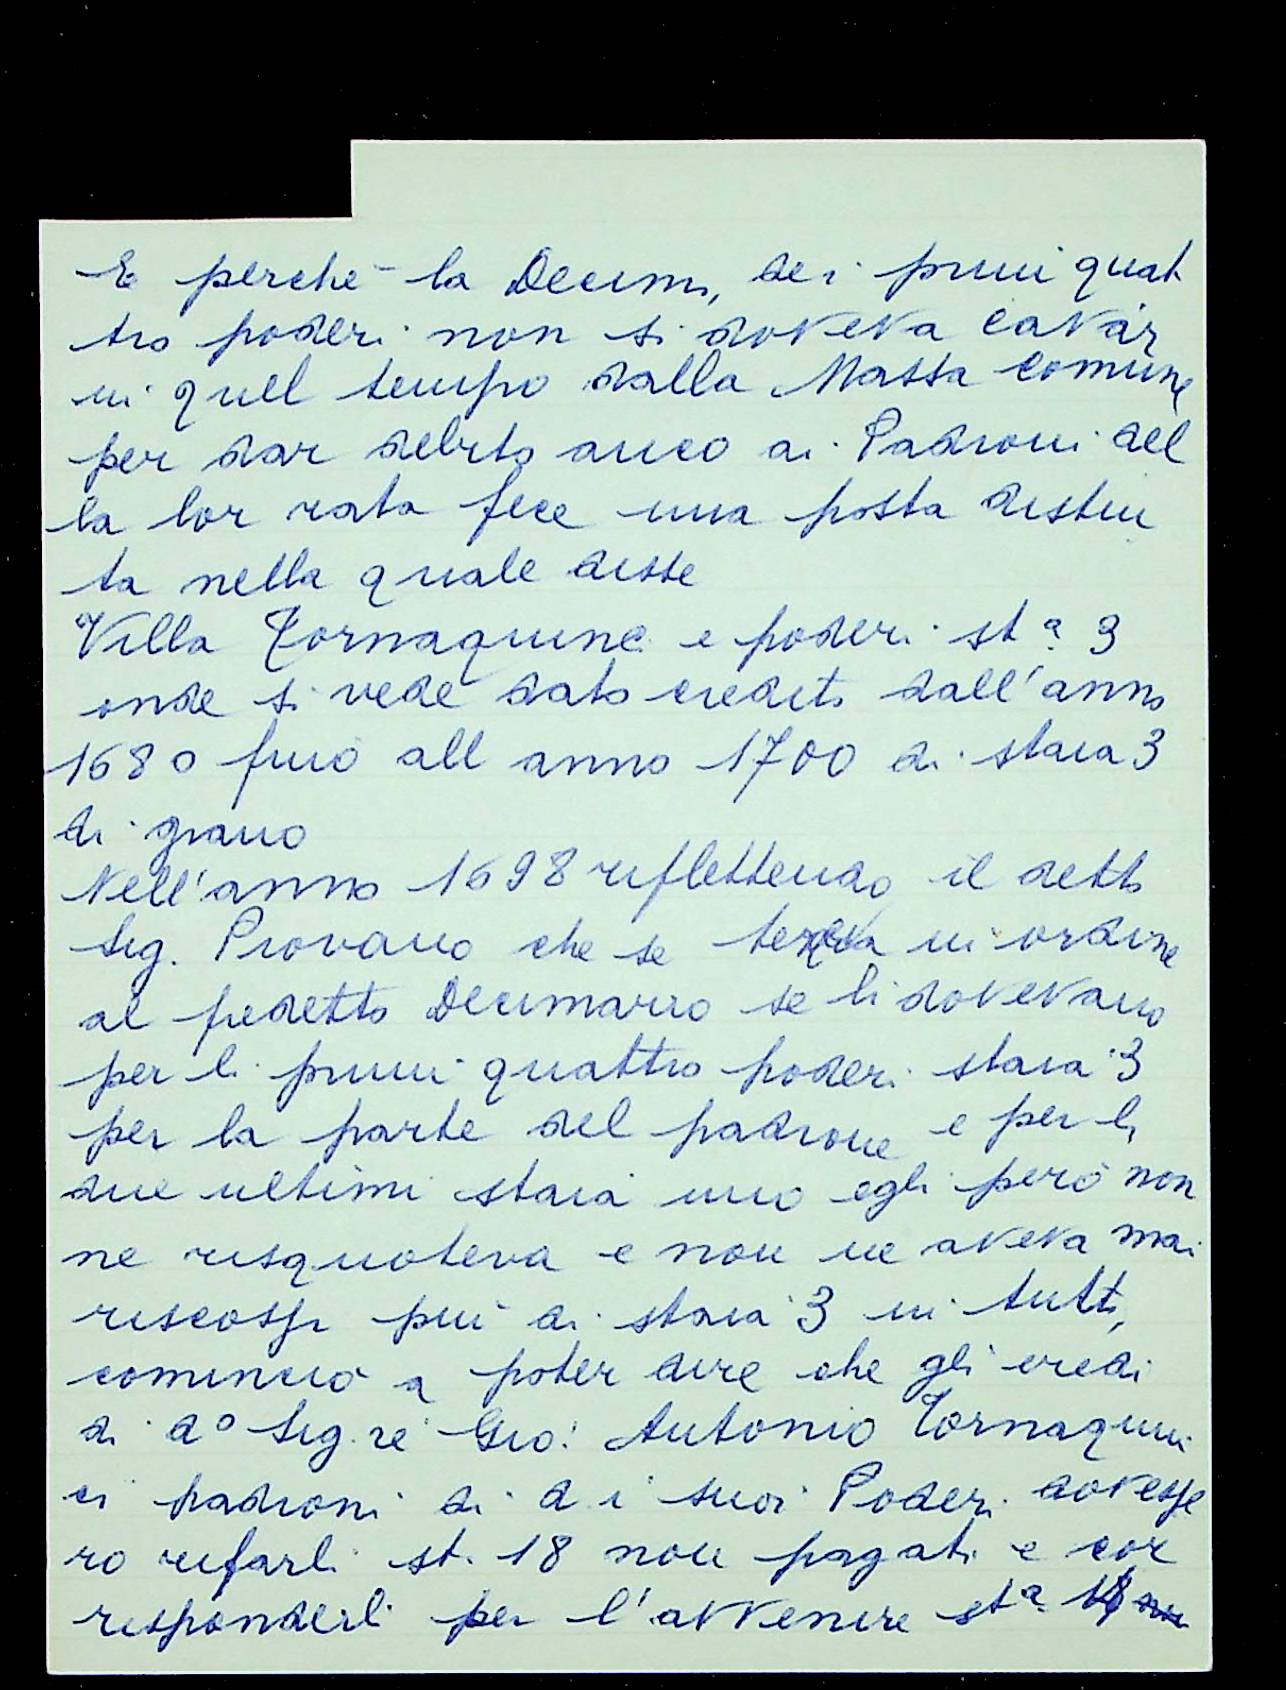 E perché la Decima, dei primi quat
tro poderi non si doveva cavar
in quel tempo dalla Massa comune
per dar debito anco ai Padroni del
la lor rata fece una posta distin
ta nella quale disse
Villa Tornaquinc. e poderi stª 3
onde si vede dato credito dall'anno
1680 fino all anno 1700 di staia 3
di grano
Nell'anno 1698 riflettendo il detto
Sig. Provano che se in ordine
al predetto Decimario se li dovevano
per li primi quattro poderi staia 3
per la parte del padrone e per li
due ultimi staia uno egli però non
ne risquoteva e non ne aveva mai
riscossi più di staia 3 in tutto,
cominciò a poter dire che gli eredi
di dº Sig.re Gio: Antonio Tornaquin
ci padroni di d. i suoi Poderi dovesse
ro rifarli st. 18 non pagati e cor
risponderli per l'avvenire stª